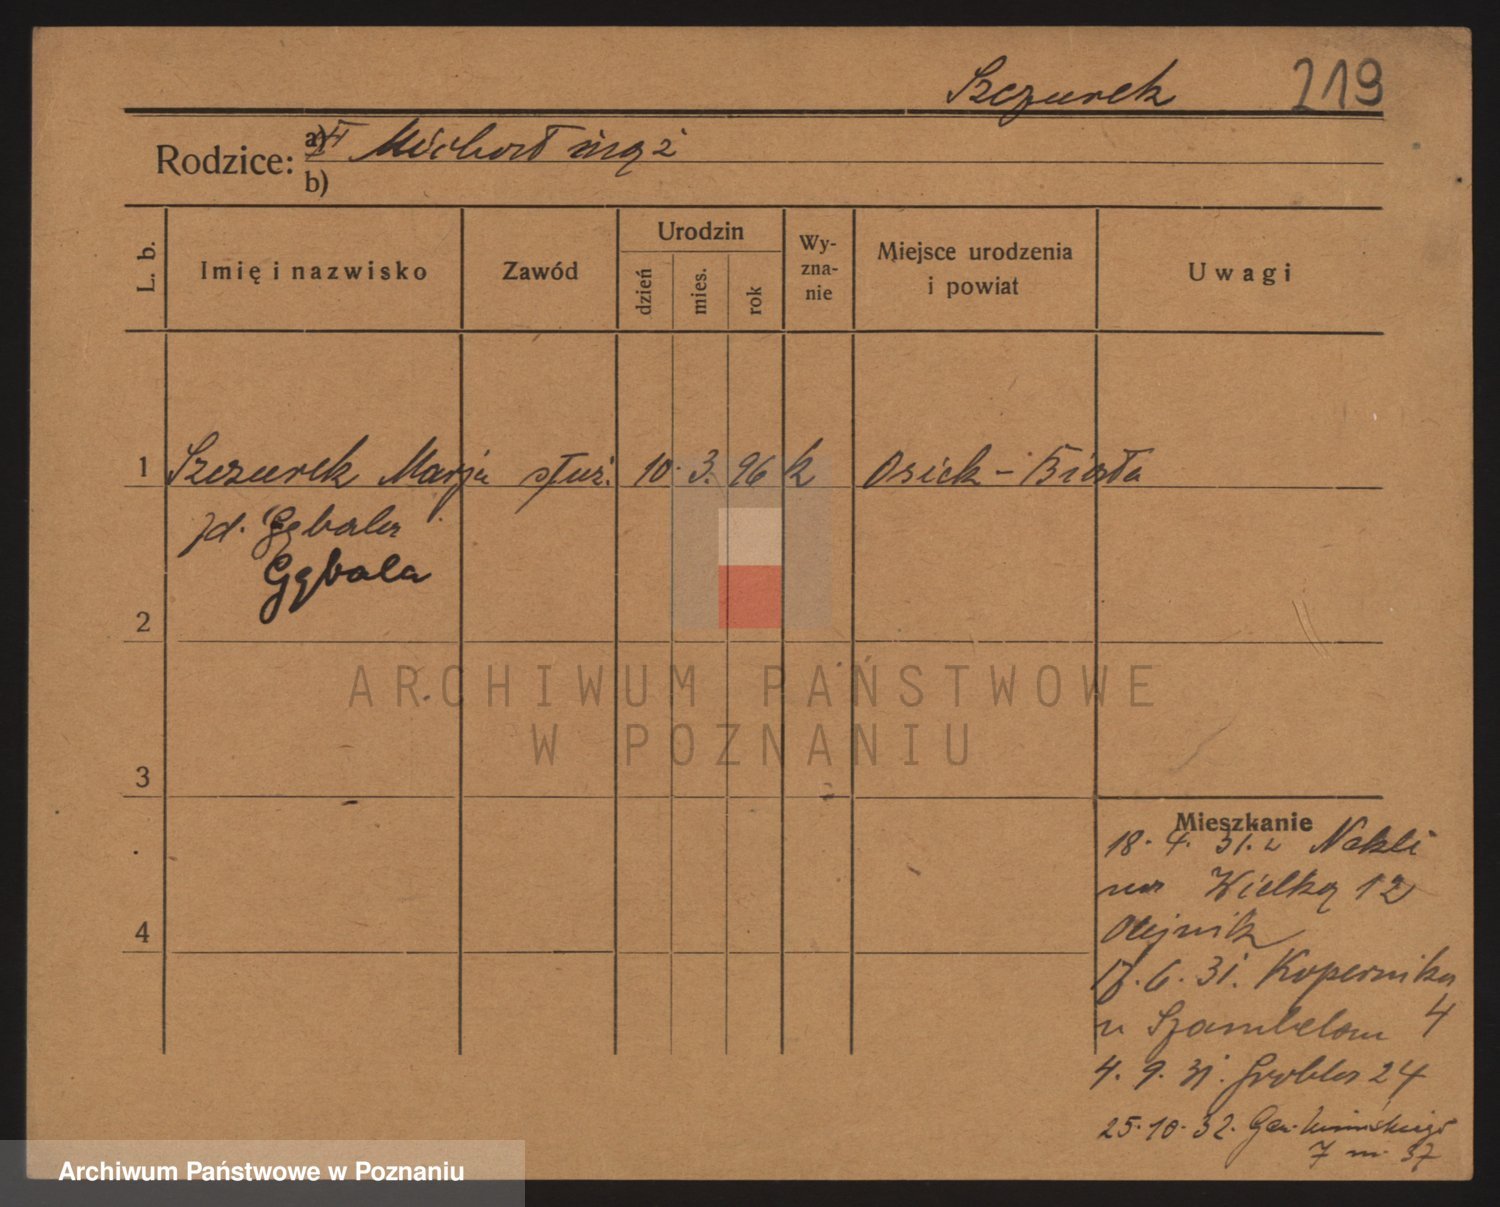 Szczurek 219
Rodzice: a) Michał mąż
b)
L. b. Imię i nazwisko Zawód Urodzin dzień mies. rok Wy-zna-nie Miejsce urodzenia i powiat Uwagi
1 Szczurek Marja służ. 10. 3. 96 k Osiek - Biała
zd. Gębala
Gębala
2
ARCHIWUM PAŃSTWOWE
W POZNANIU
3
4
Mieszkanie
18. 4. 31. z Nakli
na Wielką 12
Olejnik
6. 31. Kopernika
u Szambelan 4
4. 9. 31. Grobla 24
25. 10. 32. Gen.
7 m. 37
Archiwum Państwowe w Poznaniu